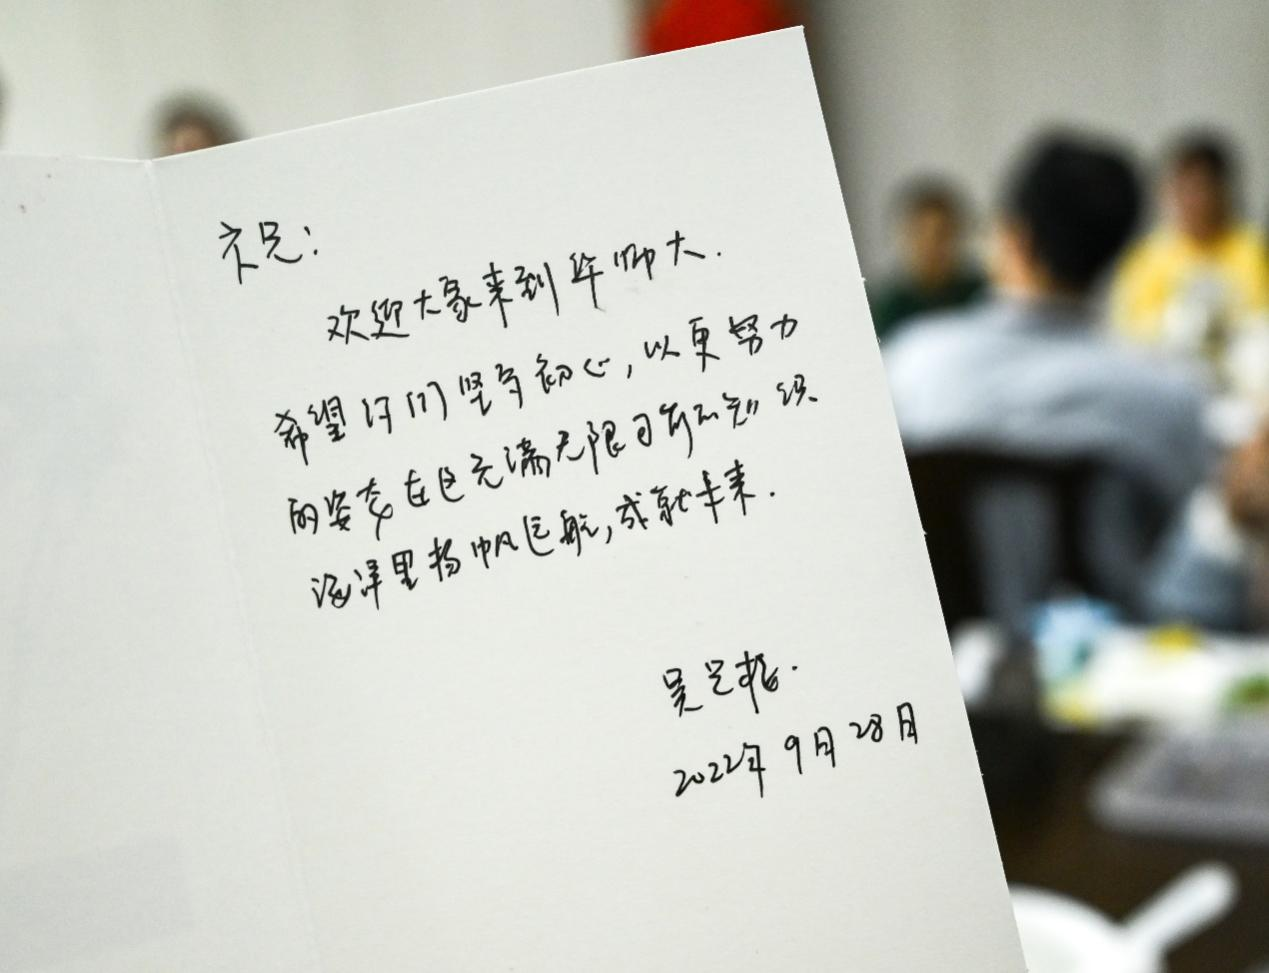 欢迎大家来到华师大.
希望你们坚守初心,以更努力
的姿态在这充满无限可能的知识
海洋里扬帆远航,成就未来.
吴
2022年9月28日